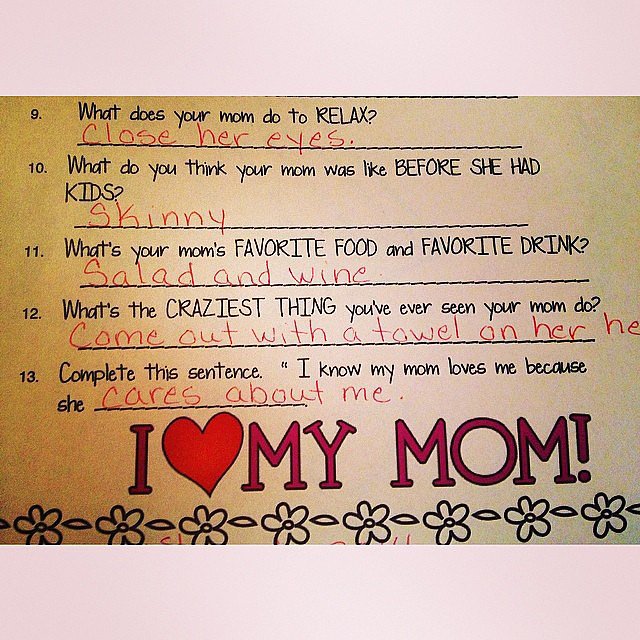 9. What does your mom do to RELAX?
Close her eyes.
10. What do you think your mom was like BEFORE SHE HAD
KIDS?
Skinny
11. What's your mom's FAVORITE FOOD and FAVORITE DRINK?
Salad and wine.
12. What's the CRAZIEST THING you've ever seen your mom do?
Come out with a towel on her he
13. Complete this sentence. " I know my mom loves me because
she cares about me.
I MY MOM!